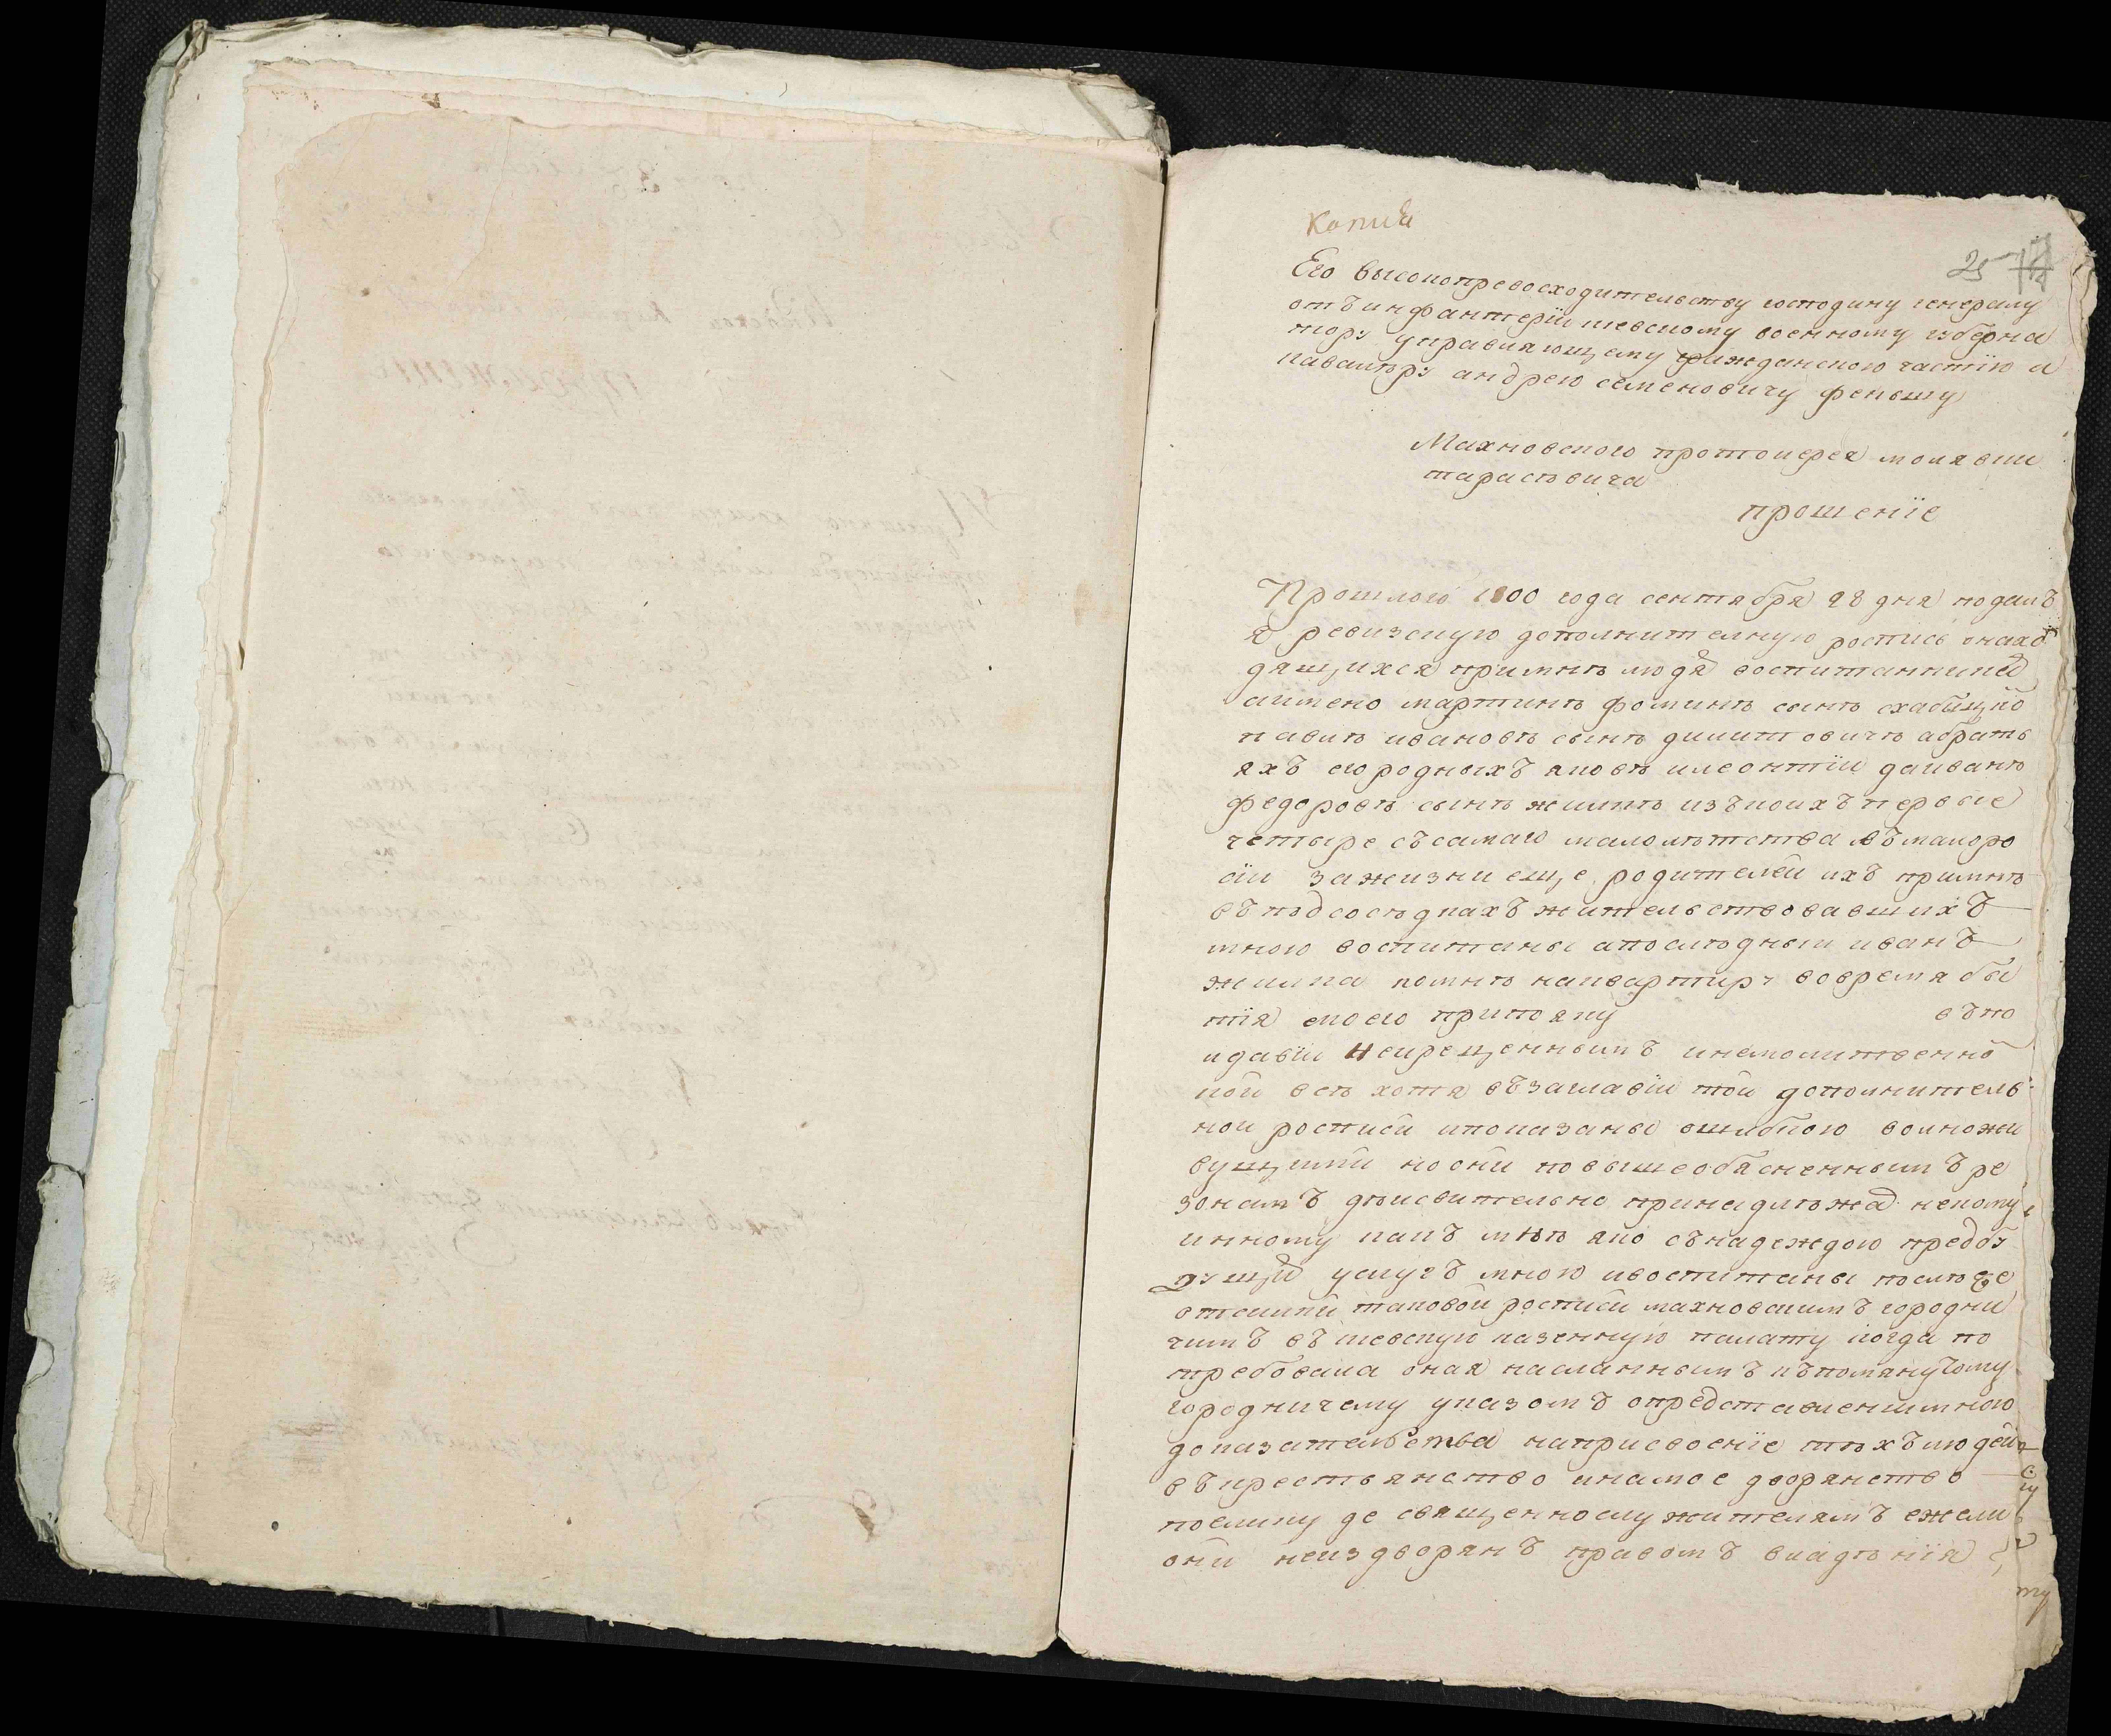 Копия
25
Его высокопревосходительству господину генералу
отъ инфантерїи киевскому военному губерна
тору управляющему гражданскою частїю и
кавалеру андрею семеновичу феньшу
Махновского протоиерея
тарасевича
прошенїе
Прошлого 1800 года сентября 28 дня подалъ
я ревизскую дополнителную роспись онахо
дящихся примнѣ людя воспитанника
аимено мартинъ фоминъ сынъ
ивановъ сынъ абрать
яхъ его родныхъ яковъ илеонтїи даиванъ
федоровъ сынъ изъкоихъ первые
четыре съсамаго малолѣтства въмалоро
сїи зажизни еще родителей ихъ примнѣ
въподсосѣдкахъ жительствовавшихъ
мною воспитаны апослѣдный иванъ
комнѣ наквартиру вовремя бы
тїя моего въпо
некрещеннымъ инемолитвенно
кой всѣ хотя възаглавїи той дополнитель
ной росписи ипоказаны ошибкою волножи
вущими нооны повышеобясненнымъ ре
зонамъ дѣисвительно принадлѣжа некому
инному какъ мнѣ яко снадеждою предбу
дущи услугъ мною ивоспитаны послѣ
отсилки таковой росписи махновскимъ городни
чимъ въкиевскую казенную палату когда по
требовала оная насланнымъ къпомянутому
городничему указомъ опредставлении мною
доказательства наприсвоенїе тѣхъ людей
въкрестьянство инамое дворянство
поелику де священнослужителямъ ежели
они неиздворянъ правомъ владѣнїя